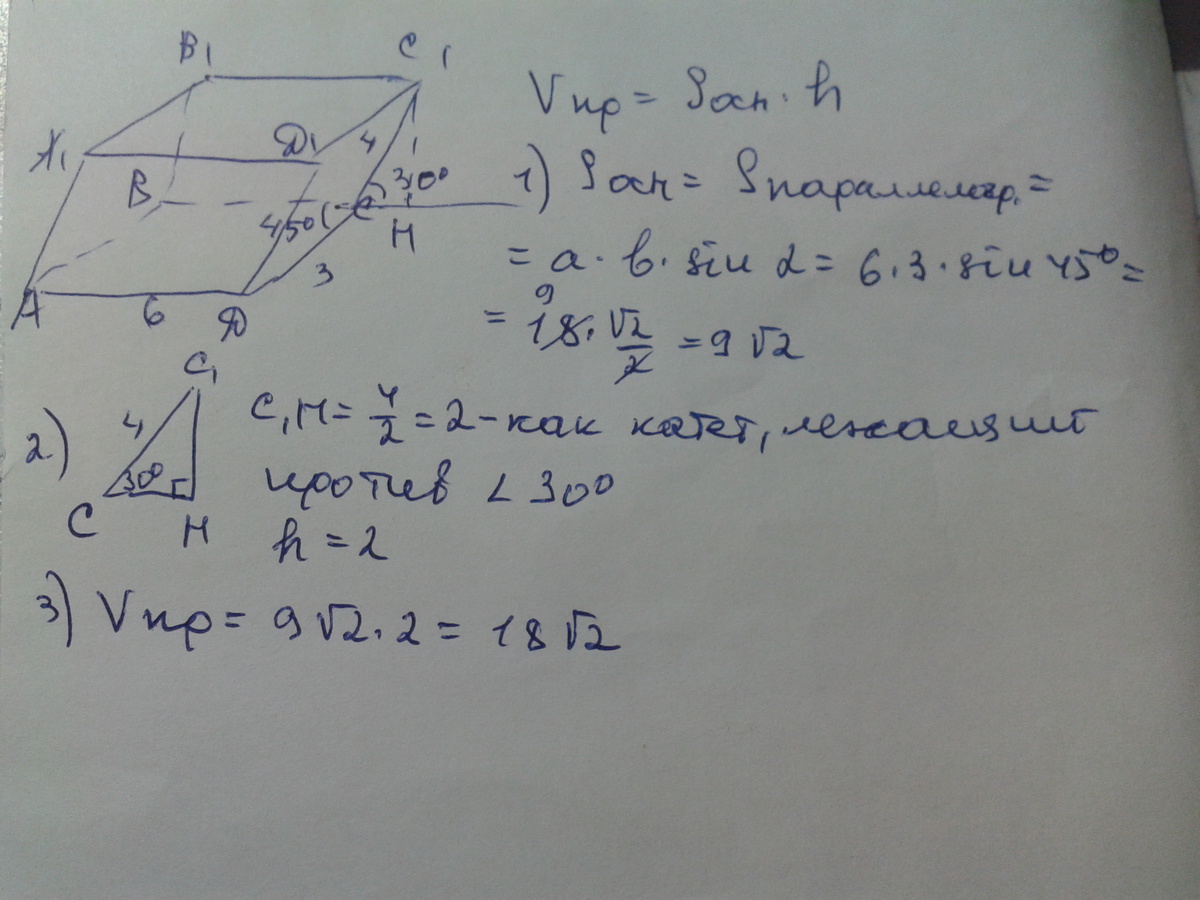 B₁ C₁
A₁ Д₁ 4
B 45° C 30° H
3
A 6 Д
Vпр = Sосн · h
1) Sосн = Sпараллелогр. =
= a · b · sin α = 6 · 3 · sin 45° =
9
= 18 · √2/2 = 9√2
2) C₁ 4 30° C H
C₁H = 4/2 = 2 - как катет, лежащий
против ∠ 30°
h = 2
3) Vпр = 9√2 · 2 = 18√2